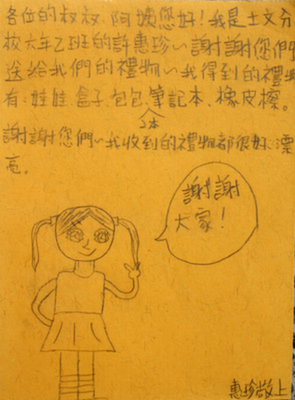 各位的叔叔、阿姨您好！我是土文分
校六年乙班的許惠珍~謝謝您們
送給我們的禮物~我得到的禮物
有：娃娃、盒子、包包、筆記本、橡皮擦。
3本
謝謝您們~我收到的禮物都很好、漂
亮。
謝謝
大家！
惠珍敬上